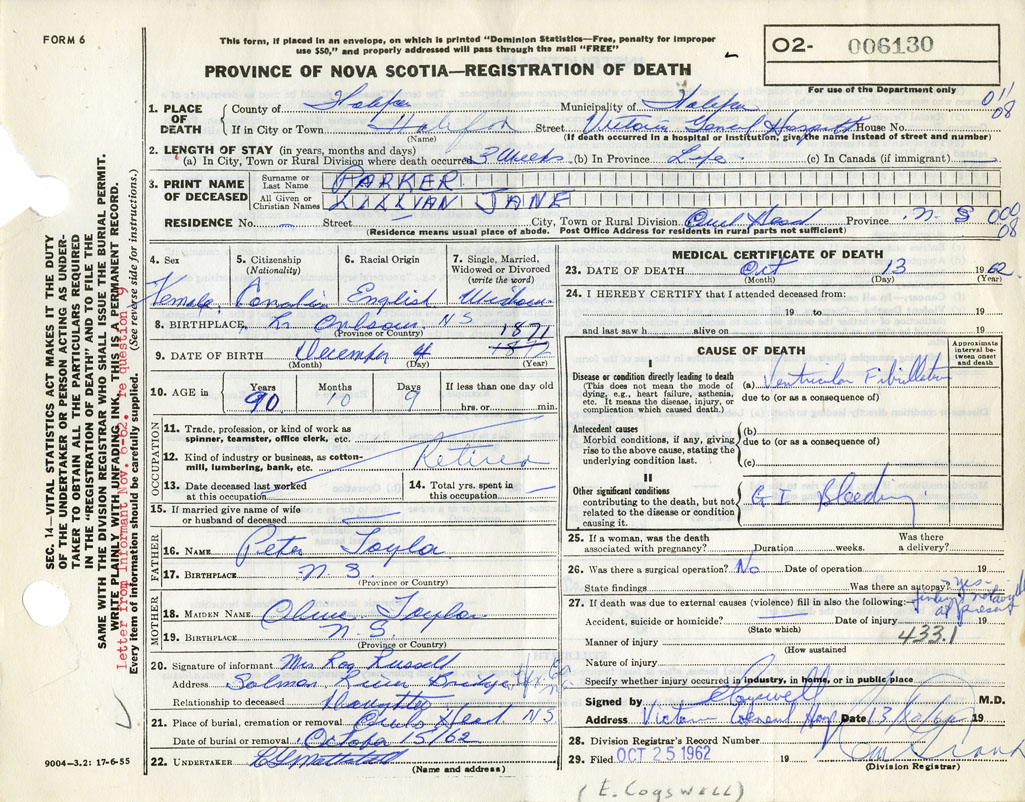 FORM 6
This form, if placed in an envelope, on which is printed "Dominion Statistics—Free, penalty for improper
use $50," and properly addressed will pass through the mail "FREE"
O2- 006130
PROVINCE OF NOVA SCOTIA—REGISTRATION OF DEATH
For use of the Department only
1. PLACE OF DEATH
County of Halifax Municipality of Halifax 011 08
If in City or Town Halifax Street Victoria General Hospital House No.
(Name) (If death occurred in a hospital or institution, give the name instead of street and number)
2. LENGTH OF STAY (in years, months and days)
(a) In City, Town or Rural Division where death occurred 3 Weeks (b) In Province Life (c) In Canada (if immigrant) —
3. PRINT NAME OF DECEASED
Surname or Last Name PARKER
All Given or Christian Names LILLIAN JANE
RESIDENCE No. — Street — City, Town or Rural Division Owls Head Province N S 000 08
(Residence means usual place of abode. Post Office Address for residents in rural parts not sufficient)
4. Sex
Female
5. Citizenship (Nationality)
Canadian
6. Racial Origin
English
7. Single, Married, Widowed or Divorced (write the word)
Widow
8. BIRTHPLACE NS
(Province or Country)
1871
9. DATE OF BIRTH December 4 1872
(Month) (Day) (Year)
10. AGE in
Years Months Days If less than one day old
90 10 9 hrs. or min.
OCCUPATION
11. Trade, profession, or kind of work as
spinner, teamster, office clerk, etc.
12. Kind of industry or business, as cotton-
mill, lumbering, bank, etc. Retired
13. Date deceased last worked
at this occupation
14. Total yrs. spent in
this occupation
15. If married give name of wife
or husband of deceased
FATHER
16. NAME Peter Taylor
17. BIRTHPLACE N.S.
(Province or Country)
MOTHER
18. MAIDEN NAME Taylor
19. BIRTHPLACE N.S.
(Province or Country)
20. Signature of informant Mrs Roy Russell
Address Salmon River Bridge, Hfx. Co. N.S.
Relationship to deceased Daughter
21. Place of burial, cremation or removal Owls Head NS
Date of burial or removal October 15/62
22. UNDERTAKER
(Name and address)
9004—3.2: 17-6-55
MEDICAL CERTIFICATE OF DEATH
23. DATE OF DEATH Oct 13 1962
(Month) (Day) (Year)
24. I HEREBY CERTIFY that I attended deceased from:
19 to 19
and last saw h alive on 19
CAUSE OF DEATH
Approximate interval between onset and death
I
Disease or condition directly leading to death
(This does not mean the mode of
dying, e.g., heart failure, asthenia,
etc. It means the disease, injury, or
complication which caused death.)
(a) Ventricular Fibrillation
due to (or as a consequence of)
Antecedent causes
Morbid conditions, if any, giving
rise to the above cause, stating the
underlying condition last.
(b)
due to (or as a consequence of)
(c)
II
Other significant conditions
contributing to the death, but not
related to the disease or condition
causing it.
G I Bleeding
25. If a woman, was the death
associated with pregnancy? Duration weeks.
Was there
a delivery?
26. Was there a surgical operation? No Date of operation 19
State findings Was there an autopsy? Yes -
findings not available at present
27. If death was due to external causes (violence) fill in also the following:
Accident, suicide or homicide? Date of injury 19
(State which)
433.1
Manner of injury
(How sustained
Nature of injury
Specify whether injury occurred in industry, in home, or in public place
Signed by E Cogswell M.D.
Address Victoria General Hosp Date 13 19
28. Division Registrar's Record Number
29. Filed OCT 25 1962 19
(Division Registrar)
(E. COGSWELL)
SEC. 14—VITAL STATISTICS ACT MAKES IT THE DUTY
OF THE UNDERTAKER OR PERSON ACTING AS UNDER-
TAKER TO OBTAIN ALL THE PARTICULARS REQUIRED
IN THE "REGISTRATION OF DEATH" AND TO FILE THE
SAME WITH THE DIVISION REGISTRAR WHO SHALL ISSUE THE BURIAL PERMIT.
WRITE PLAINLY WITH UNFADING INK. THIS IS A PERMANENT RECORD.
Letter from informant Nov. 6-62. re question 9
Every item of information should be carefully supplied. (See reverse side for instructions.)